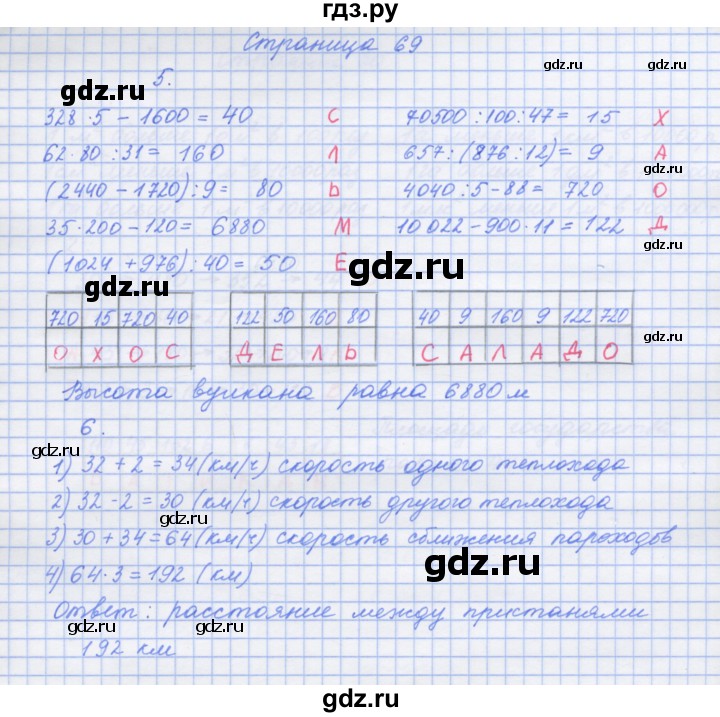 гдз.ру
Страница 69
gdz.ru
gdz.ru
5.
328·5 - 1600 = 40 С 70500:100:47 = 15 Х
gdz.ru
62·80:31 = 160 Л 657:(876:12) = 9 А
(2440 - 1720):9 = 80 Ь 4040:5-88 = 720 О
gdz.ru
35·200 - 120 = 6880 М 10022-900·11 = 122 Д
(1024 + 976):40 = 50 Е
gdz.ru
gdz.ru
720 15 720 40 122 50 160 80 40 9 160 9 122 720
gdz.ru
О Х О С Д Е Л Ь С А Л А Д О
Высота вулкана равна 6880 м
6.
gdz.ru
1) 32 + 2 = 34 (км/ч) скорость одного теплохода
2) 32 - 2 = 30 (км/ч) скорость другого теплохода
gdz.ru
3) 30 + 34 = 64 (км/ч) скорость сближения пароходов
gdz.ru
4) 64·3 = 192 (км)
Ответ: расстояние между пристанями
gdz.ru
192 км
gdz.ru
gdz.ru